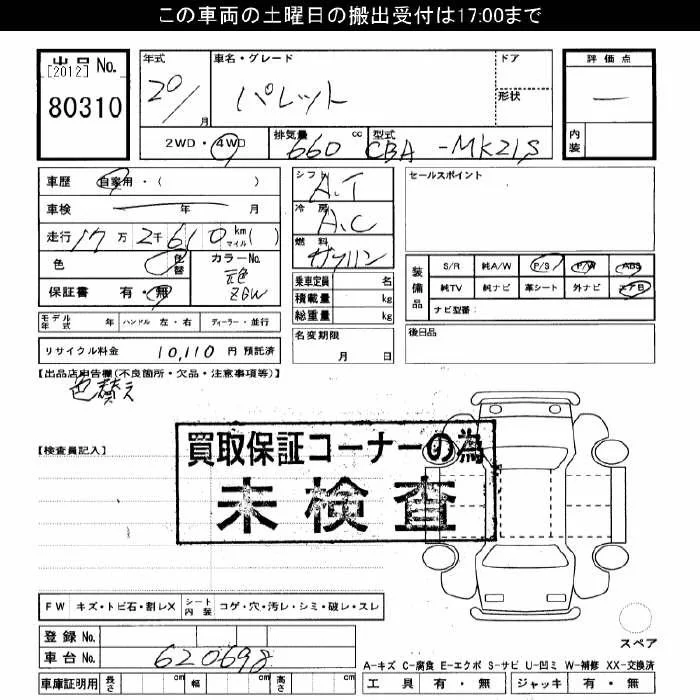 この車両の土曜日の搬出受付は17:00まで
出品 No.
[2012]
80310
年式
20/
月
車名・グレード
パレット
ドア
形状
評価点
—
内装
2WD・4WD
排気量
660 cc
型式
CBA-MK21S
車歴 自家用・( )
車検 年 月
走行 17万 2千 610 km マイル ( )
色
色替
カラーNo.
元色
ZGW
保証書 有・無
シフト
A.T
冷房
A.C
燃料
ガソリン
乗車定員 名
積載量 kg
総重量 kg
セールスポイント
装備品
S/R 純A/W P/S P/W ABS
純TV 純ナビ 革シート 外ナビ エアB
ナビ型番:
モデル年式 年 ハンドル 左・右 ディーラー・並行
名変期限
月 日
後日品
リサイクル料金 10,110 円 預託済
【出品店申告欄(不良箇所・欠品・注意事項等)】
色替え
【検査員記入】
買取保証コーナーの為
未検査
FW キズ・トビ石・割レX
シート内装 コゲ・穴・汚レ・シミ・破レ・スレ
スペア
登録 No.
車台 No. 620698
A-キズ C-腐食 E-エクボ S-サビ U-凹ミ W-補修 XX-交換済
車庫証明用 長さ cm 幅 cm 高さ cm
工具 有・無 ジャッキ 有・無